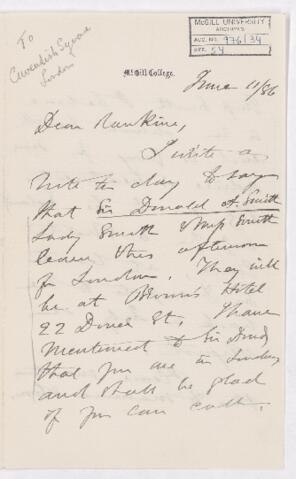 To
Cavendish Square
London
McGILL UNIVERSITY
ARCHIVES
ACC. NO. 976/34
REF. 54
McGill College.
June 11/86
Dear Rankine,
I write a
note to day to say
that Sir Donald A Smith
Lady Smith & Miss Smith
leave this afternoon
for London. They will
be at Brown's Hotel
22 Dover St. I have
mentioned to Sir Dond
that you are in London
and shall be glad
if you can call.